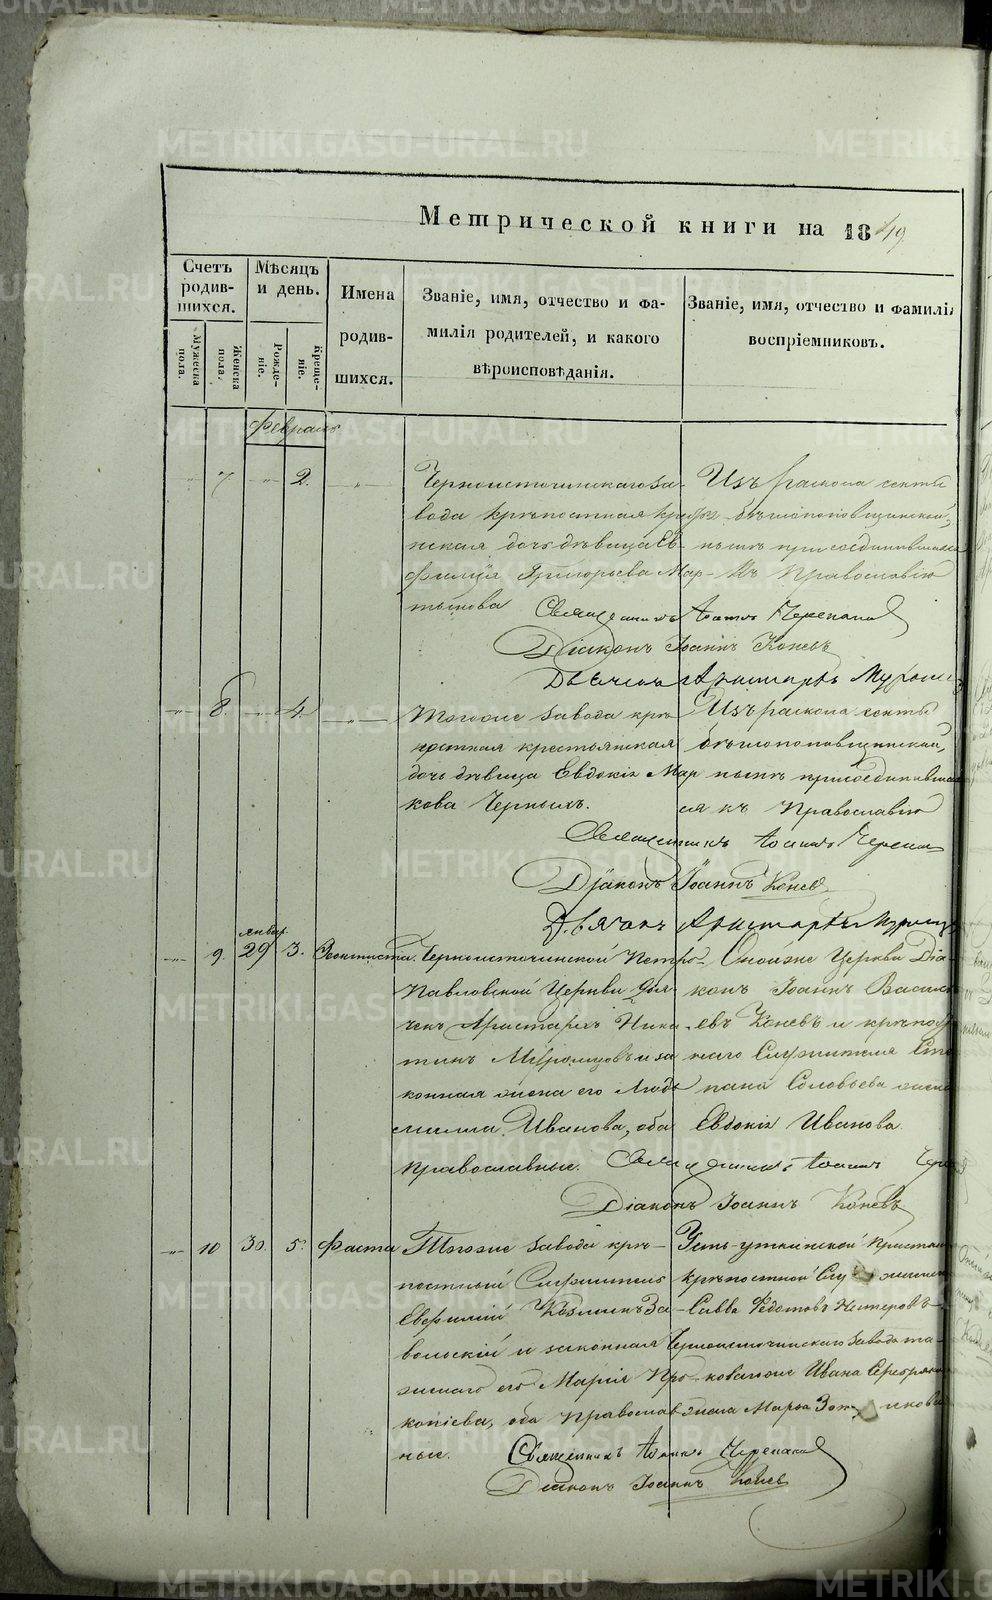 Метрической книги на 1849
Счетъ родив-шихся.
Мѣсяцъ и день.
Имена родив-шихся.
Званіе, имя, отчество и фа-
милія родителей, и какого
вѣроисповѣданія.
Званіе, имя, отчество и фамилія
воспріемниковъ.
Мужеска пола.
Женска пола.
Рожде-ніе.
Креще-ніе.
Февраль
7 2.
Черноисточинскаго за-
вода крѣпостная крестьян-
нская дочь дѣвица Ев-
фимія Григорьева Мар-
тынова
Изъ раскола секты
бѣглопоповщинской,
нынѣ присоединившаяся
къ Православію
Священникъ Іоаннъ Черепанов
Діаконъ Іоаннъ Коневъ
Дьячекъ Аристархъ
8. 4.
Тогоже завода крѣ-
постная крестьянская
дочь дѣвица Евдокія Мар
кова Черныхъ.
Изъ раскола секты
бѣглопоповщинской,
нынѣ присоединившая
ся къ Православію
Священникъ Іоаннъ Черепан
Діаконъ Іоаннъ Конев
Дьячокъ Аристархъ
9. Январ. 29 3.
Черноисточинской Петро-
Павловской Церкви Дья-
чек Аристархъ Ника-
тинъ и за
конная жена его Люд
милла Иванова, оба
православные.
Онойже Церкви Діа
конъ Іоаннъ Василь
евъ Коневъ и крѣпост
наго Служителя Сте
пана Соловьева жена
Евдокія Иванова.
Священникъ Іоаннъ Чер
Діаконъ Іоаннъ Коневъ
10 30. 5. Фаста
Тогоже завода крѣ-
постный Служитель
Евфимій Козминъ За-
вольскій и законная
жена его Марія Про-
копіева, оба православ
ные.
Усть-уткинской Пристан
крѣпостной Слу жител
Савва Федотовъ Нестеровъ
Черноисточинскаго завода та
ковагоже Ивана Серебряк
жена Марья
Священникъ Іоаннъ Черепанов
Діаконъ Іоаннъ Конев
METRIKI.GASO-URAL.RU